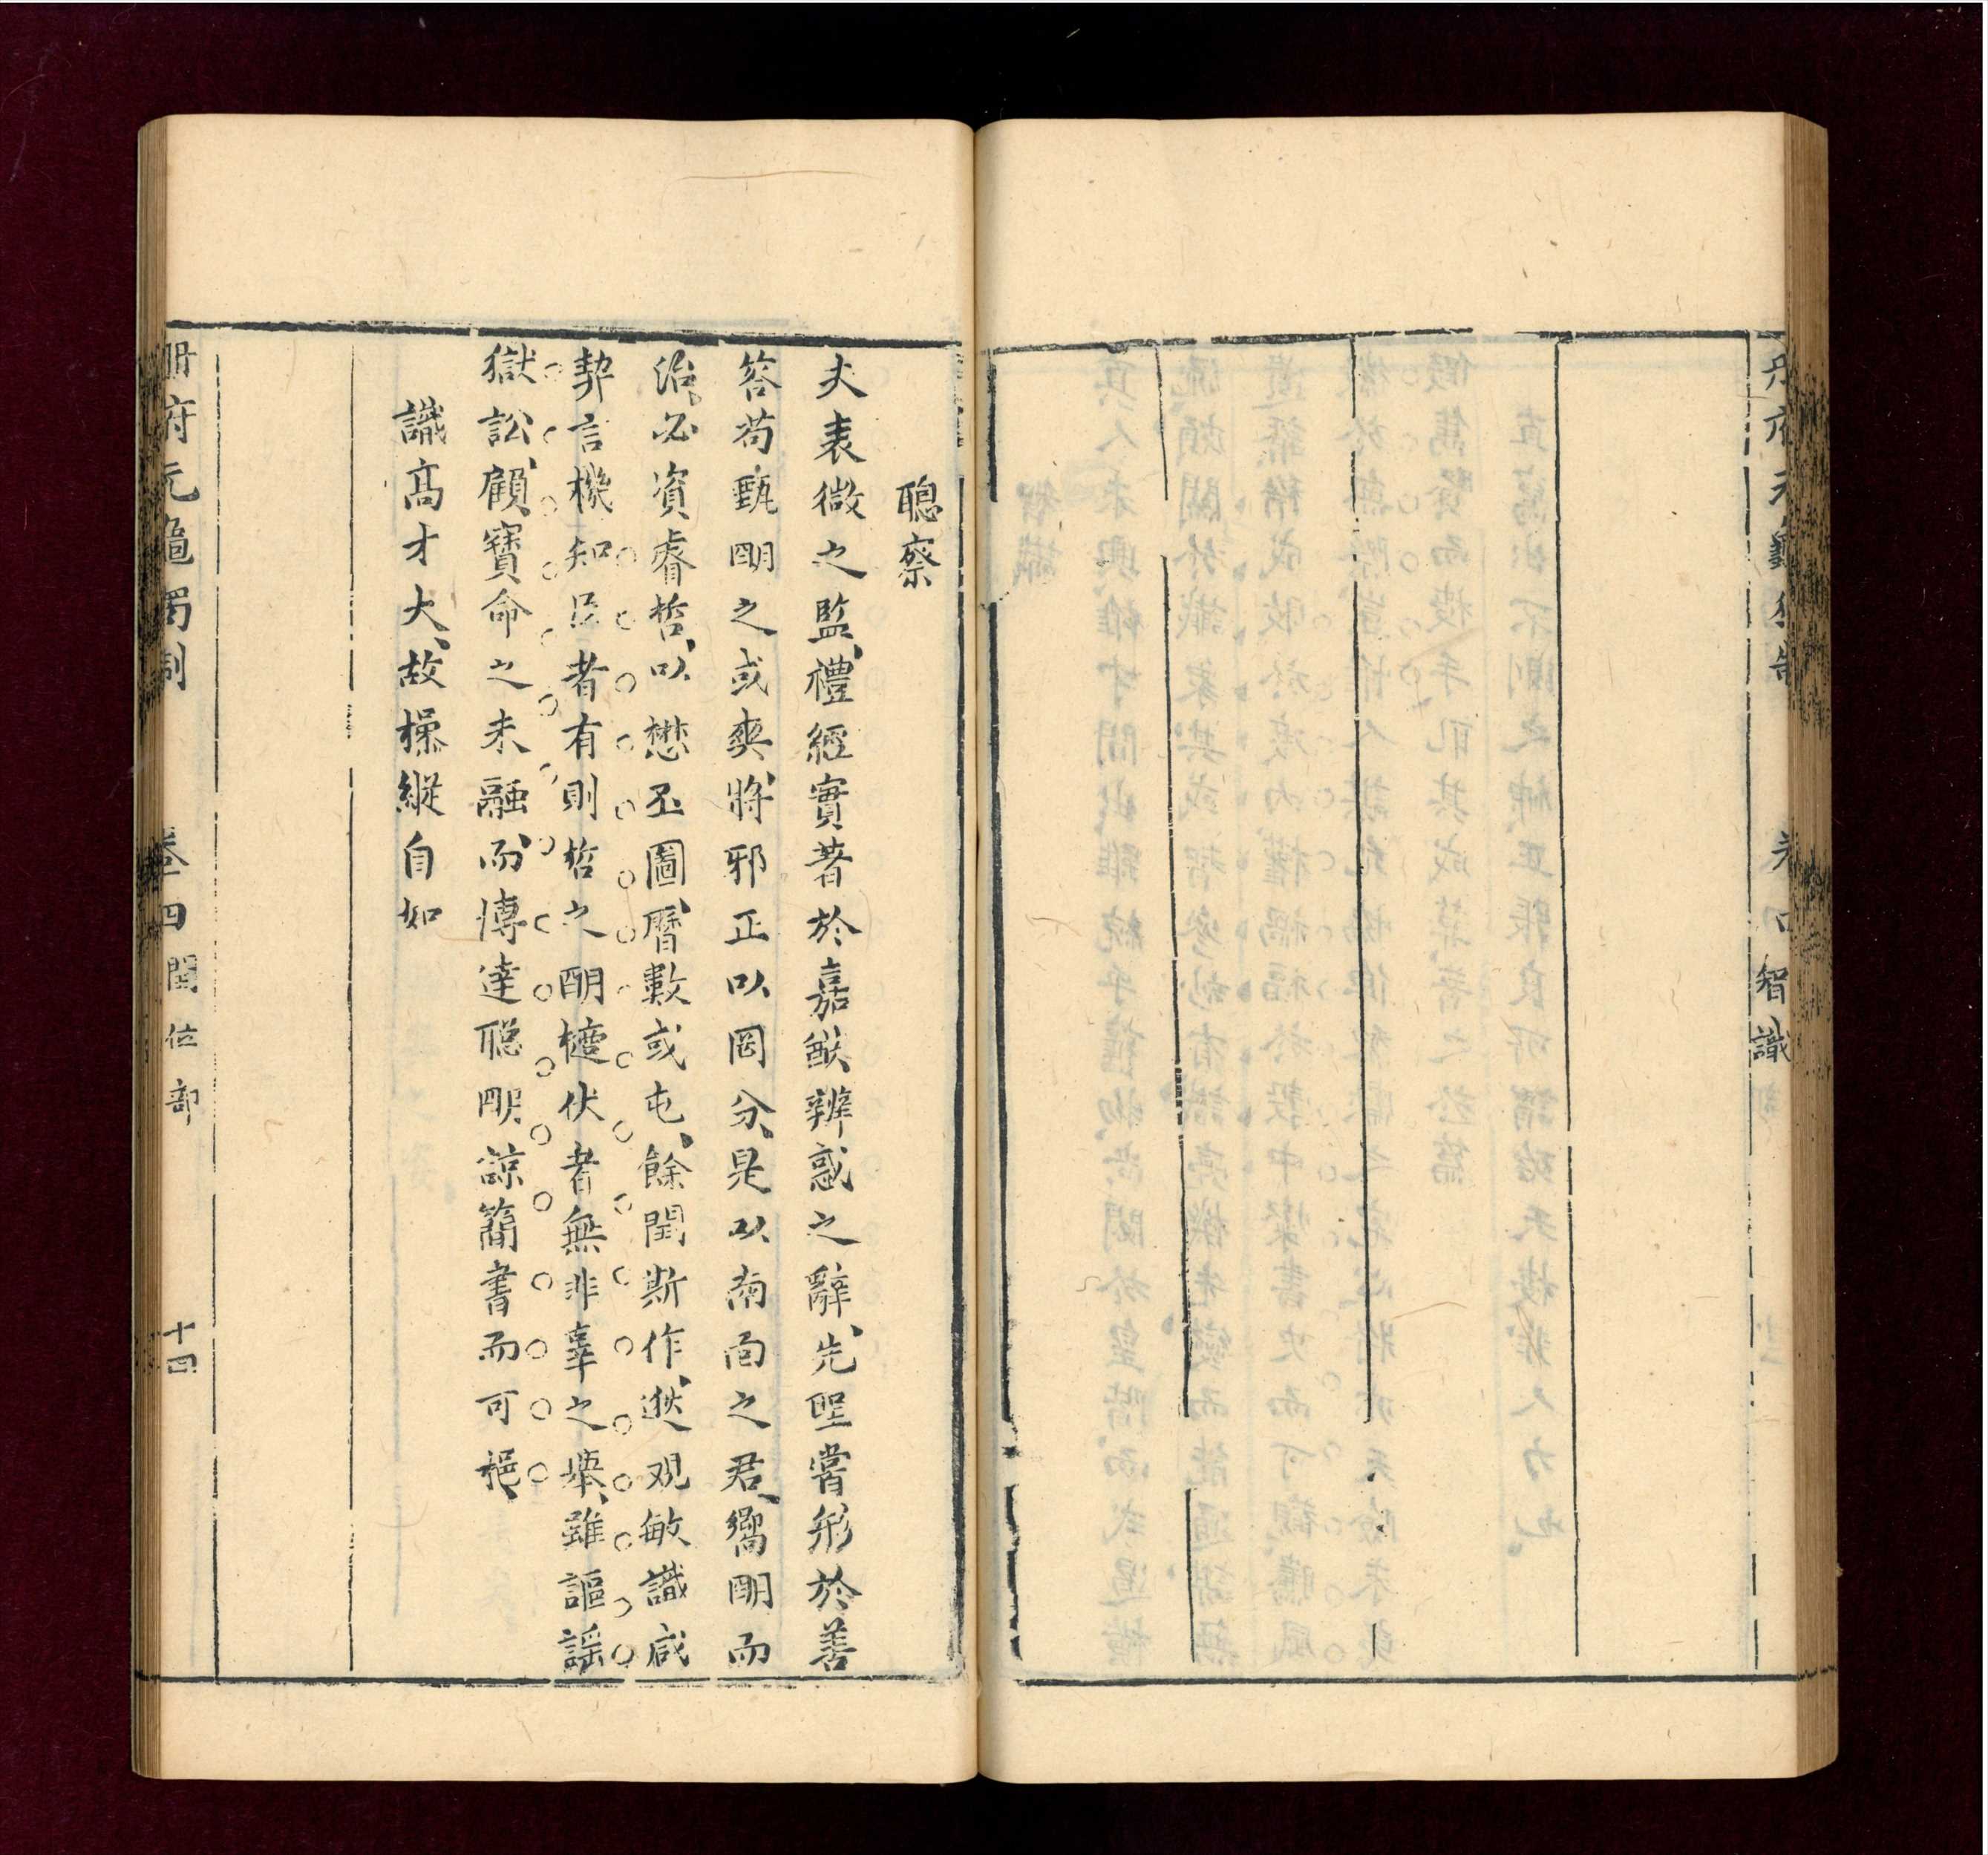 冊府元龜獨制 卷四 智識
聰察
夫表微之監、禮經實著於嘉猷辨惑之辭、先聖嘗形於善
答苟甄明之或爽、將邪正以罔分、是以南面之君、嚮明而
治、必資睿哲、以懋丕圖、曆數或屯、餘閏斯作、逖观敏識咸
契言機知臣者有則哲之明摭伏者無非辜之舉、雖謳謠
獄訟、顧寶命之未融、而博達聰明諒簡書而可挹、
識高才大、故操縱自如
冊府元龜獨制 卷四 閏位部 十四